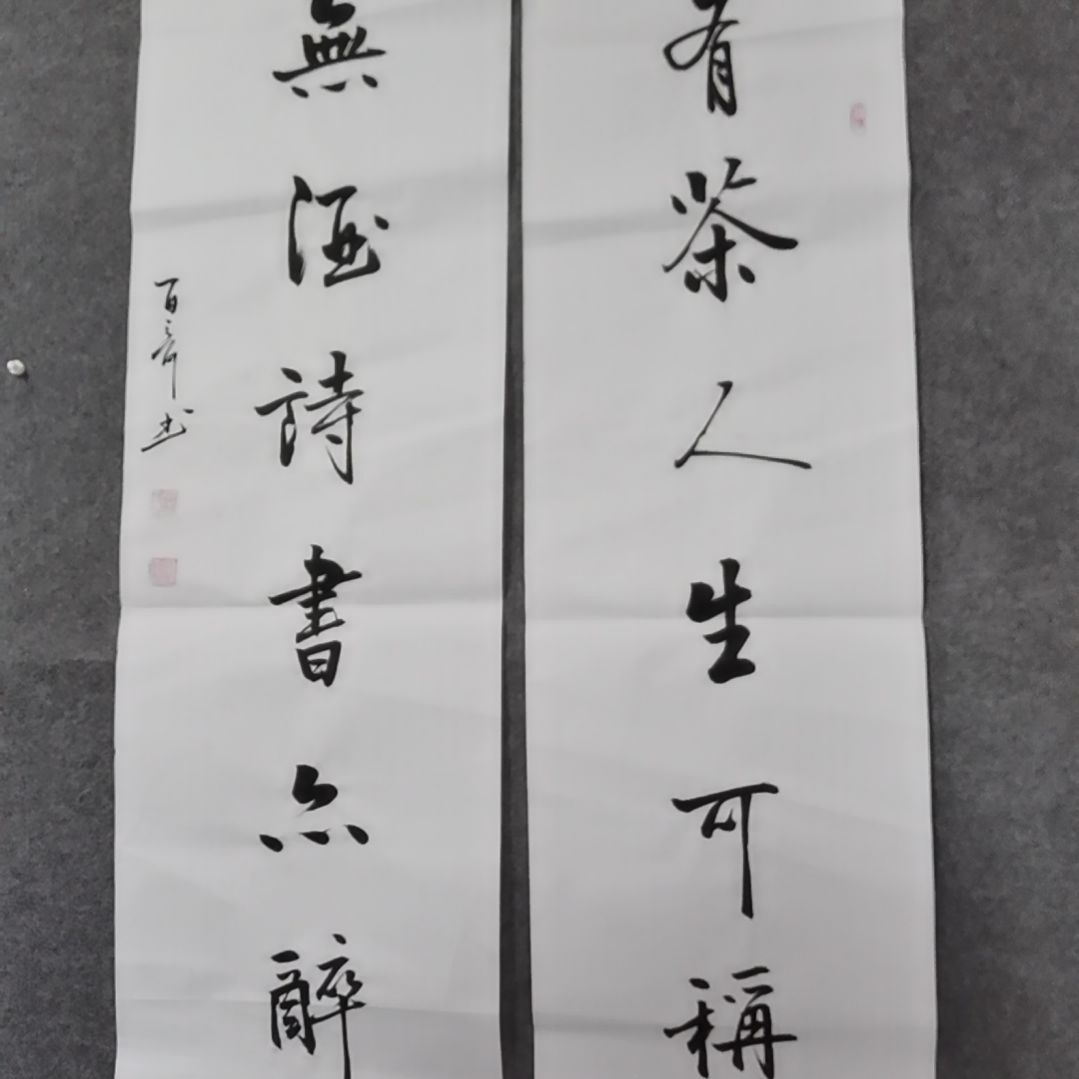 有茶人生可稱
無酒詩書亦醉